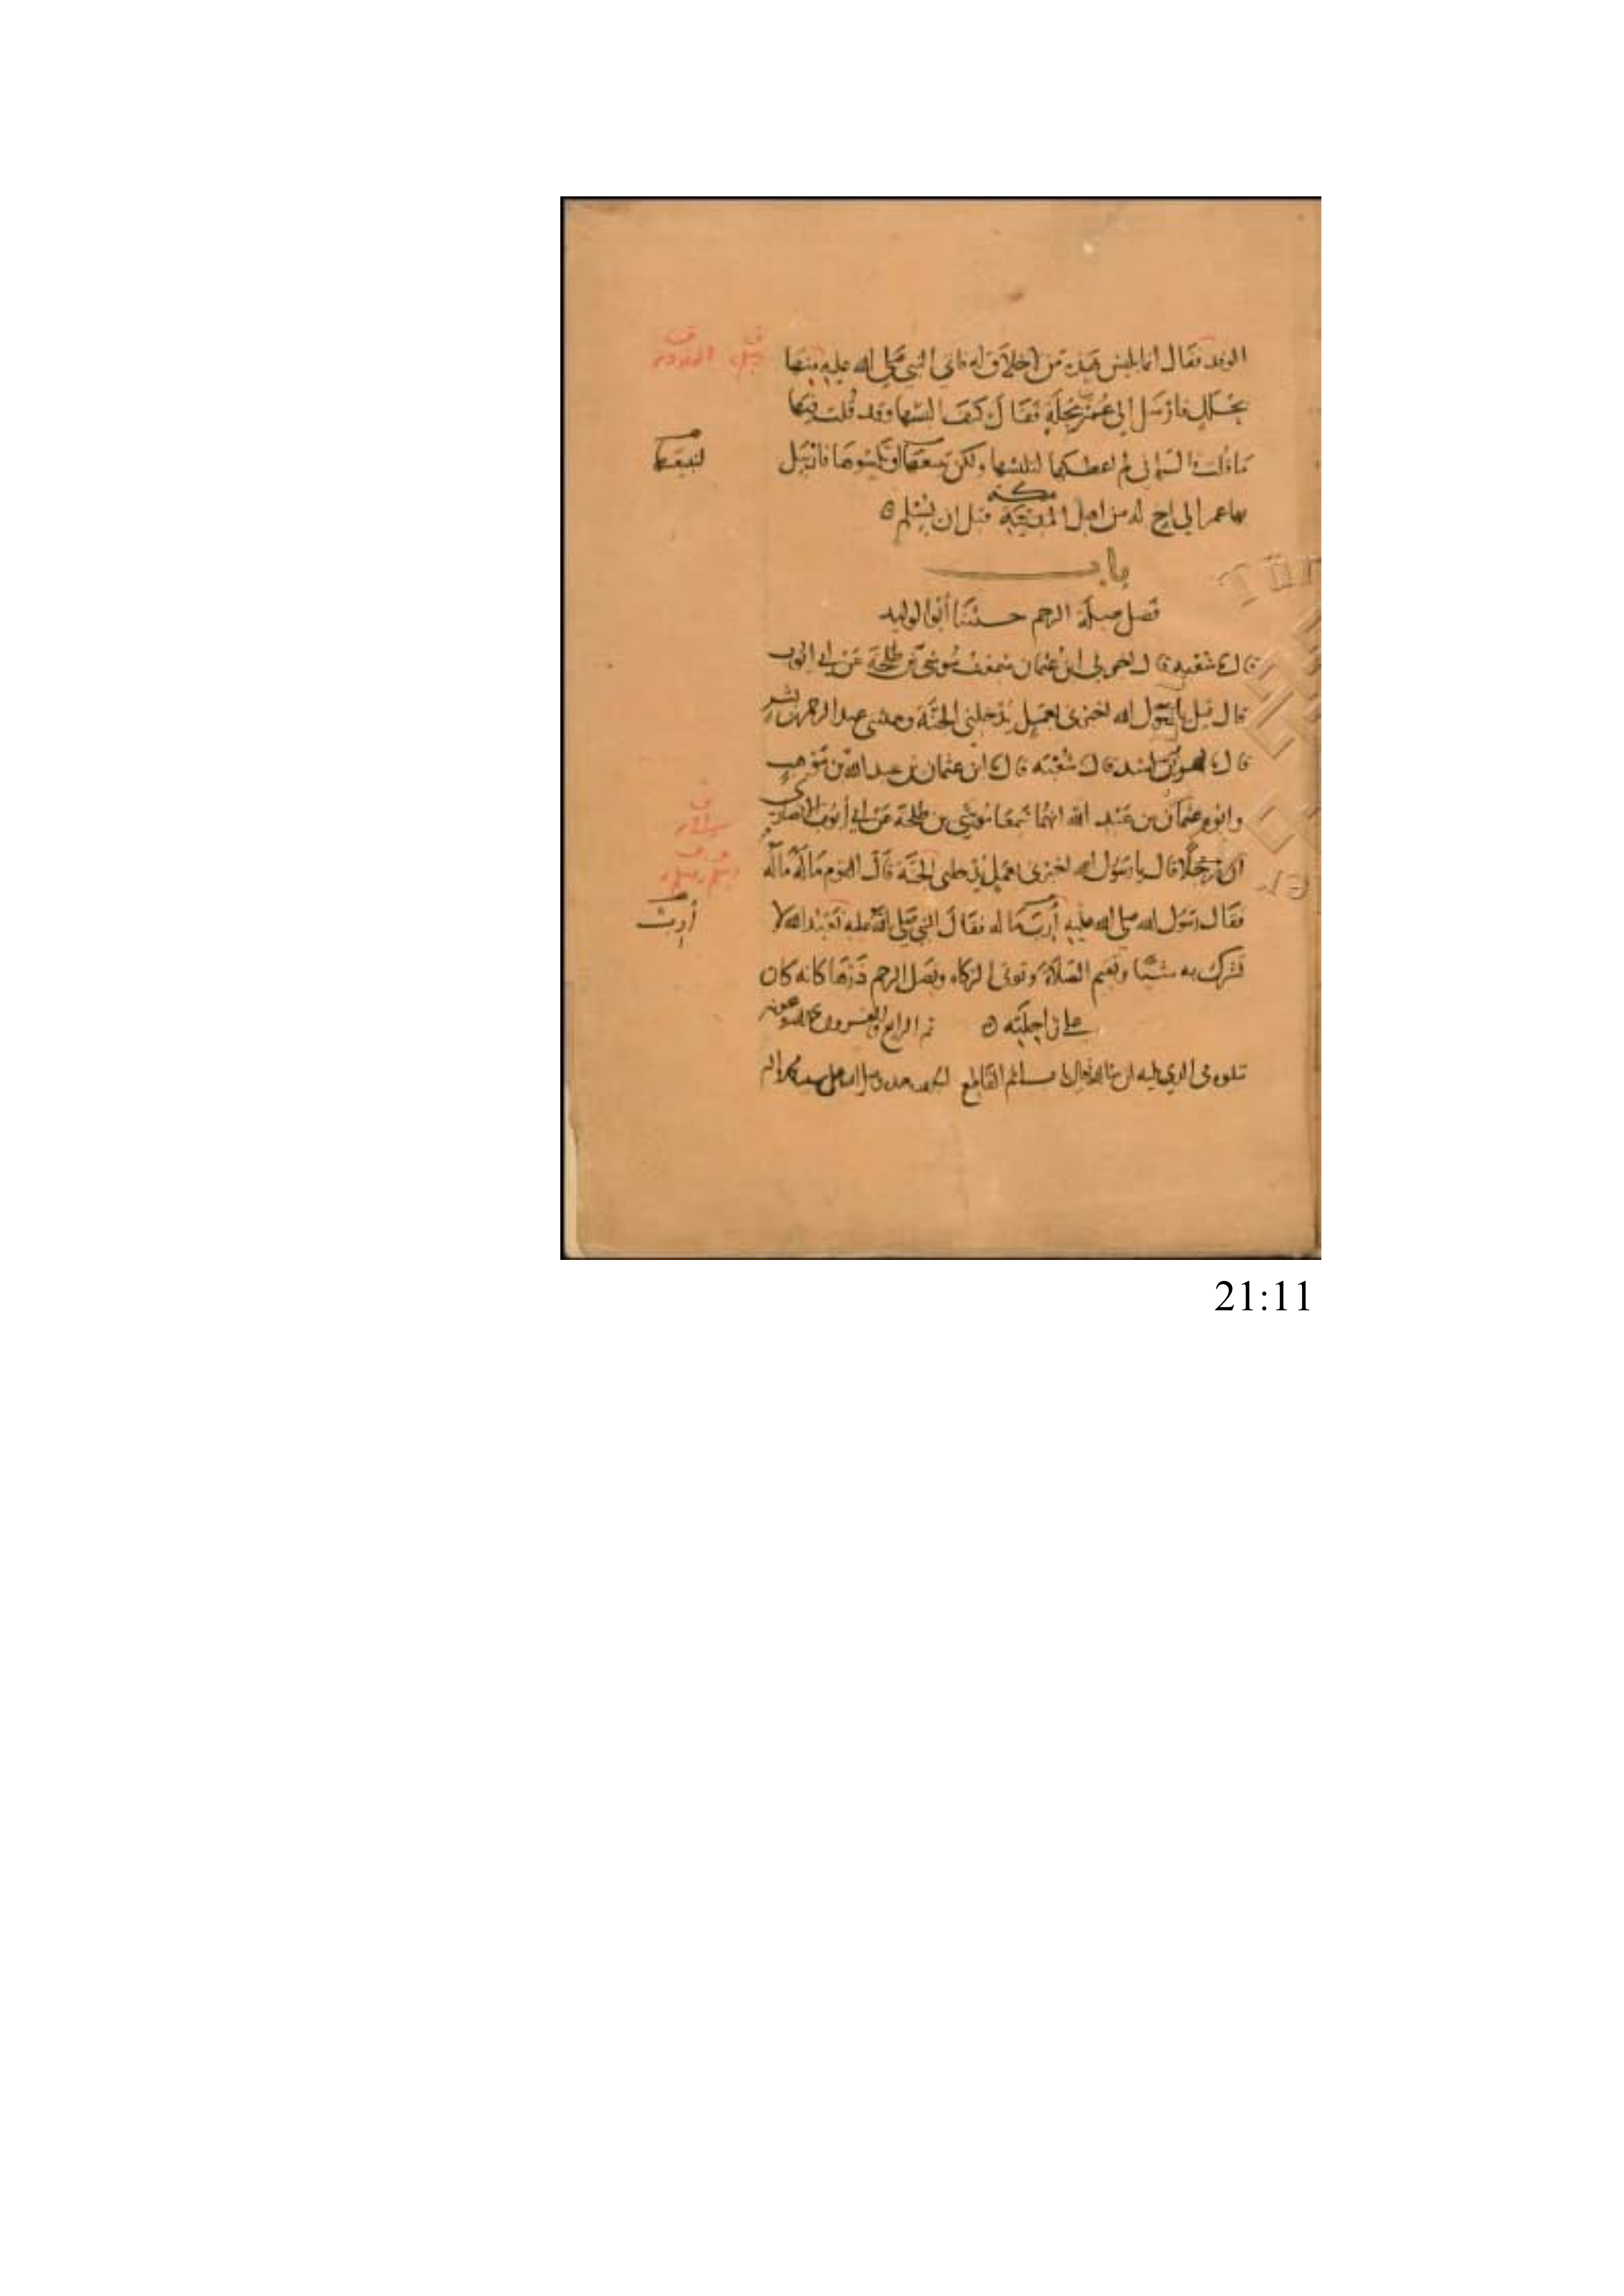 الوفد فقال انما يلبس هذه من لا خلاق له فاتي النبي صلى الله عليه منها
بحلل فارسل الى عمر بحلة فقال كيف البسها وقد قلت فيها
ما قلت قال اني لم اعطكها لتلبسها ولكن تبيعها او تكسوها فارسل
لتبيعها
بها عمر الى اخ له من اهل مكة قبل ان يسلم
باب
فضل صلة الرحم حدثنا أبو الوليد
قال شعبة قال اخبرني ابن عثمان سمعت موسى بن طلحة عن ابي ايوب
قال قيل يا رسول الله اخبرني بعمل يدخلني الجنة وحدثني عبد الرحمن بن بشر
قال بهز بن اسد قال شعبة قال ابن عثمان بن عبد الله بن موهب
وابوه عثمان بن عبد الله انهما سمعا موسى بن طلحة عن ابي أيوب الانصاري
ان رجلا قال يا رسول الله اخبرني بعمل يدخلني الجنة قال القوم ماله ماله
فقال رسول الله صلى الله عليه أرب ماله فقال النبي صلى الله عليه تعبد الله لا
أرب
تشرك به شيئا وتقيم الصلاة وتوتي الزكاه وتصل الرحم ذرها كانه كان
على راحلته تم الرابع والعشرون
يتلوه في الذي يليه ان شا الله تعالى باب اثم القاطع
21:11